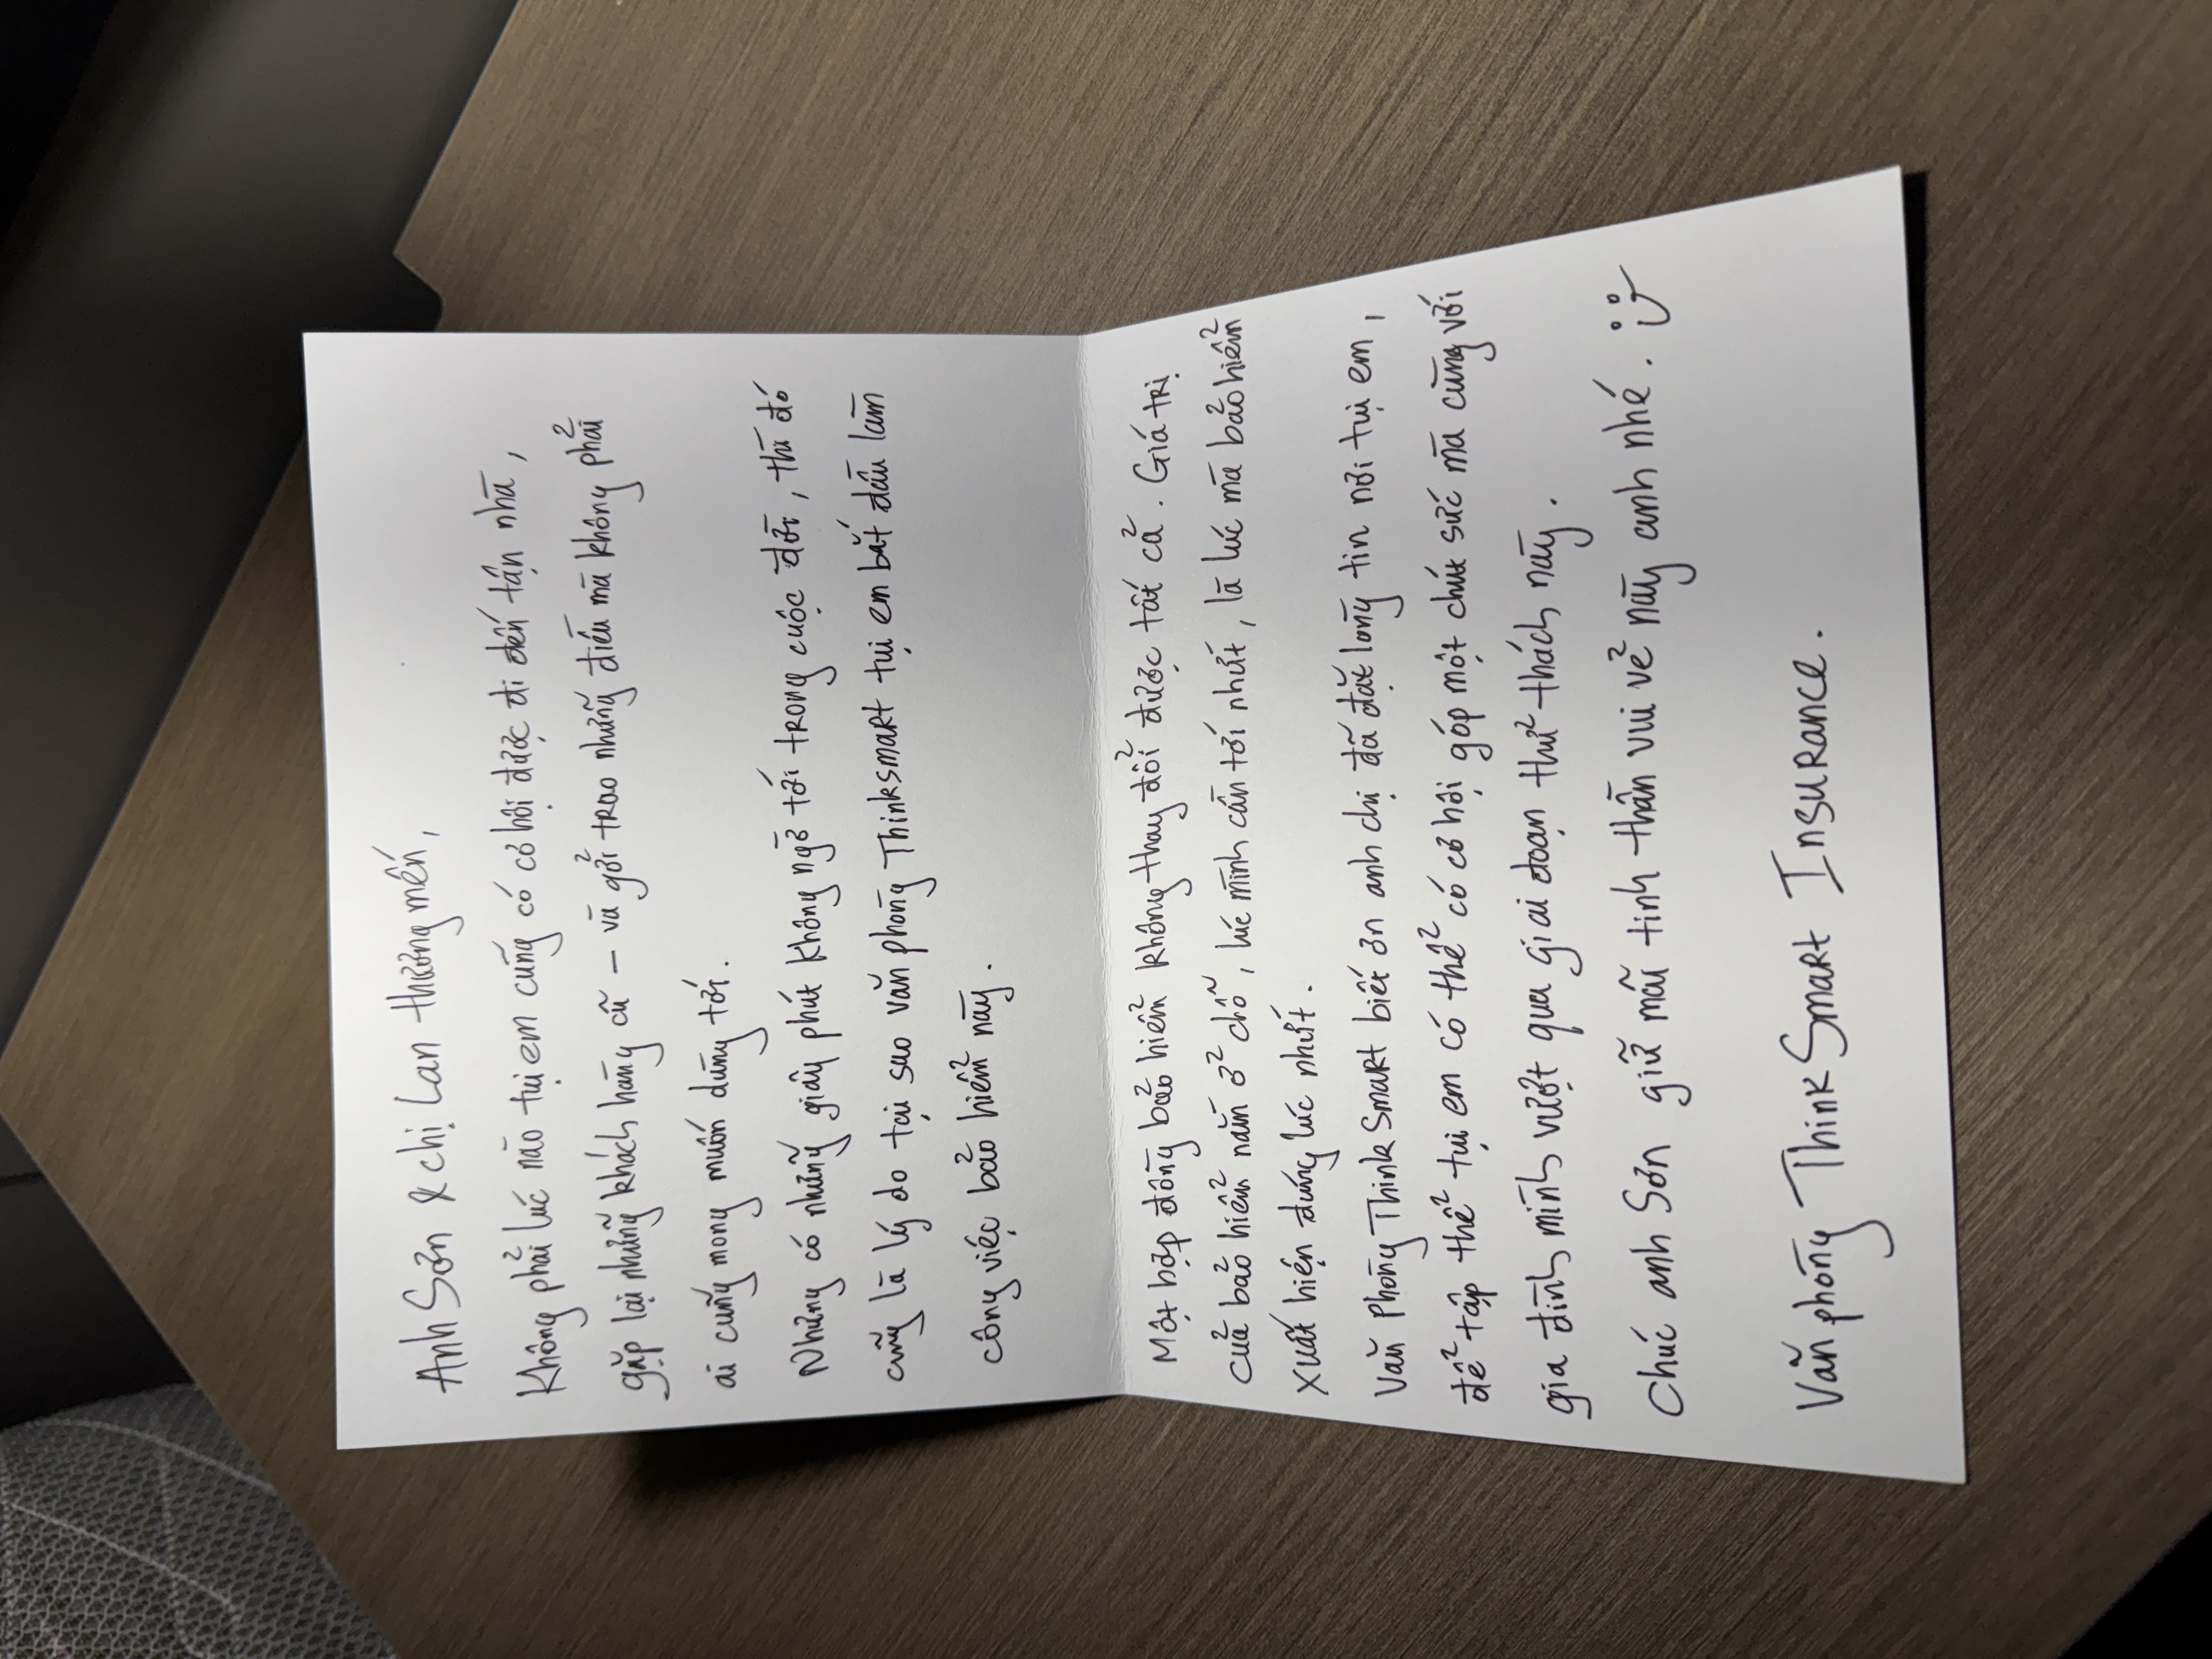 Anh Sơn & chị Lan thương mến,
Không phải lúc nào tụi em cũng có cơ hội được đi đến tận nhà,
gặp lại những khách hàng cũ – và gởi trao những điều mà không phải
ai cũng mong muốn dùng tới.
Nhưng có những giây phút không ngờ tới trong cuộc đời, thì đó
cũng là lý do tại sao văn phòng Thinksmart tụi em bắt đầu làm
công việc bảo hiểm này.
Một hợp đồng bảo hiểm không thay đổi được tất cả. Giá trị
của bảo hiểm nằm ở chỗ, lúc mình cần tới nhất, là lúc mà bảo hiểm
xuất hiện đúng lúc nhất.
Văn phòng ThinkSmart biết ơn anh chị đã đặt lòng tin nơi tụi em,
để tập thể tụi em có thể có cơ hội góp một chút sức mà cùng với
gia đình mình vượt qua giai đoạn thử thách này.
Chúc anh Sơn giữ mãi tinh thần vui vẻ này anh nhé. :)
Văn phòng ThinkSmart Insurance.